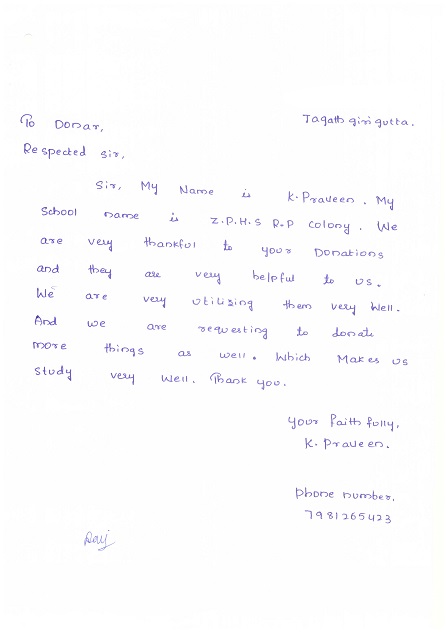 Jagath giri gutta.
To Donar,
Respected sir,
Sir, My Name is K. Praveen. My
School name is Z.P.H.S R.P colony. We
are very thankful to your Donations
and they are very helpful to us.
We are very utilizing them very well.
And we are requesting to donate
more things as well. Which Makes us
study very well. Thank you.
your faith fully,
K. Praveen.
phone number.
7981265423